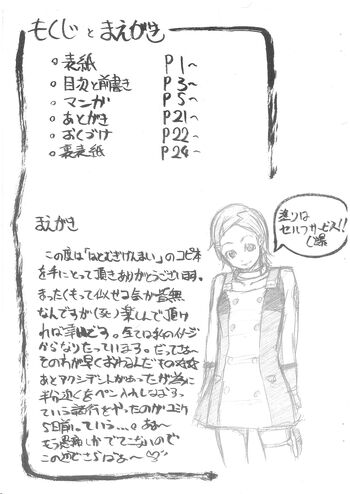 もくじ と まえがき
○ 表紙 P1～
○ 目次と前書き P3～
○ マンガ P5～
○ あとがき P21～
○ おくづけ P22～
○ 裏表紙 P24～
塗りは
セルフサービス!!
(爆
まえがき
この度は「はとむぎげんまい」のコピ本
を手にとって頂きありがとうございます。
まったくもって似せる気が皆無
なんですが(死)楽しんで頂け
れば幸いです。全ては私のイメージ
からなりたっています。だってさぁ～
そのわが早くおわるんだ
あとアクシデントがあったが為に
半分近くをペン入れしなおす
ていう試行をやったのがコミケ
5日前。ていう…。ああ～
もう愚痴しかでてこないので
この辺でさらばぁ～